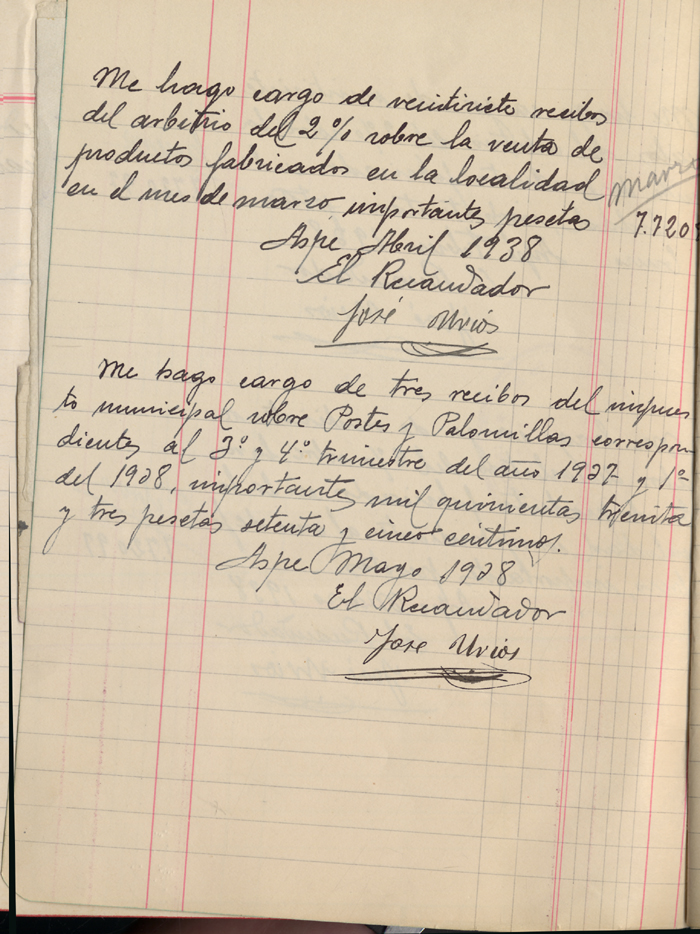 Me hago cargo de veintisiete recibos
del arbitrio del 2% sobre la venta de
productos fabricados en la localidad
en el mes de marzo, importantes pesetas 7.720
Marzo
Aspe Abril 1938
El Recaudador
José Urios
Me hago cargo de tres recibos del impues
to municipal sobre Postes y Palomillas correspon
dientes al 3º y 4º trimestre del año 1937 y 1º
del 1938, importantes mil quinientas treinta
y tres pesetas setenta y cinco centimos.
Aspe Mayo 1938
El Recaudador
José Urios